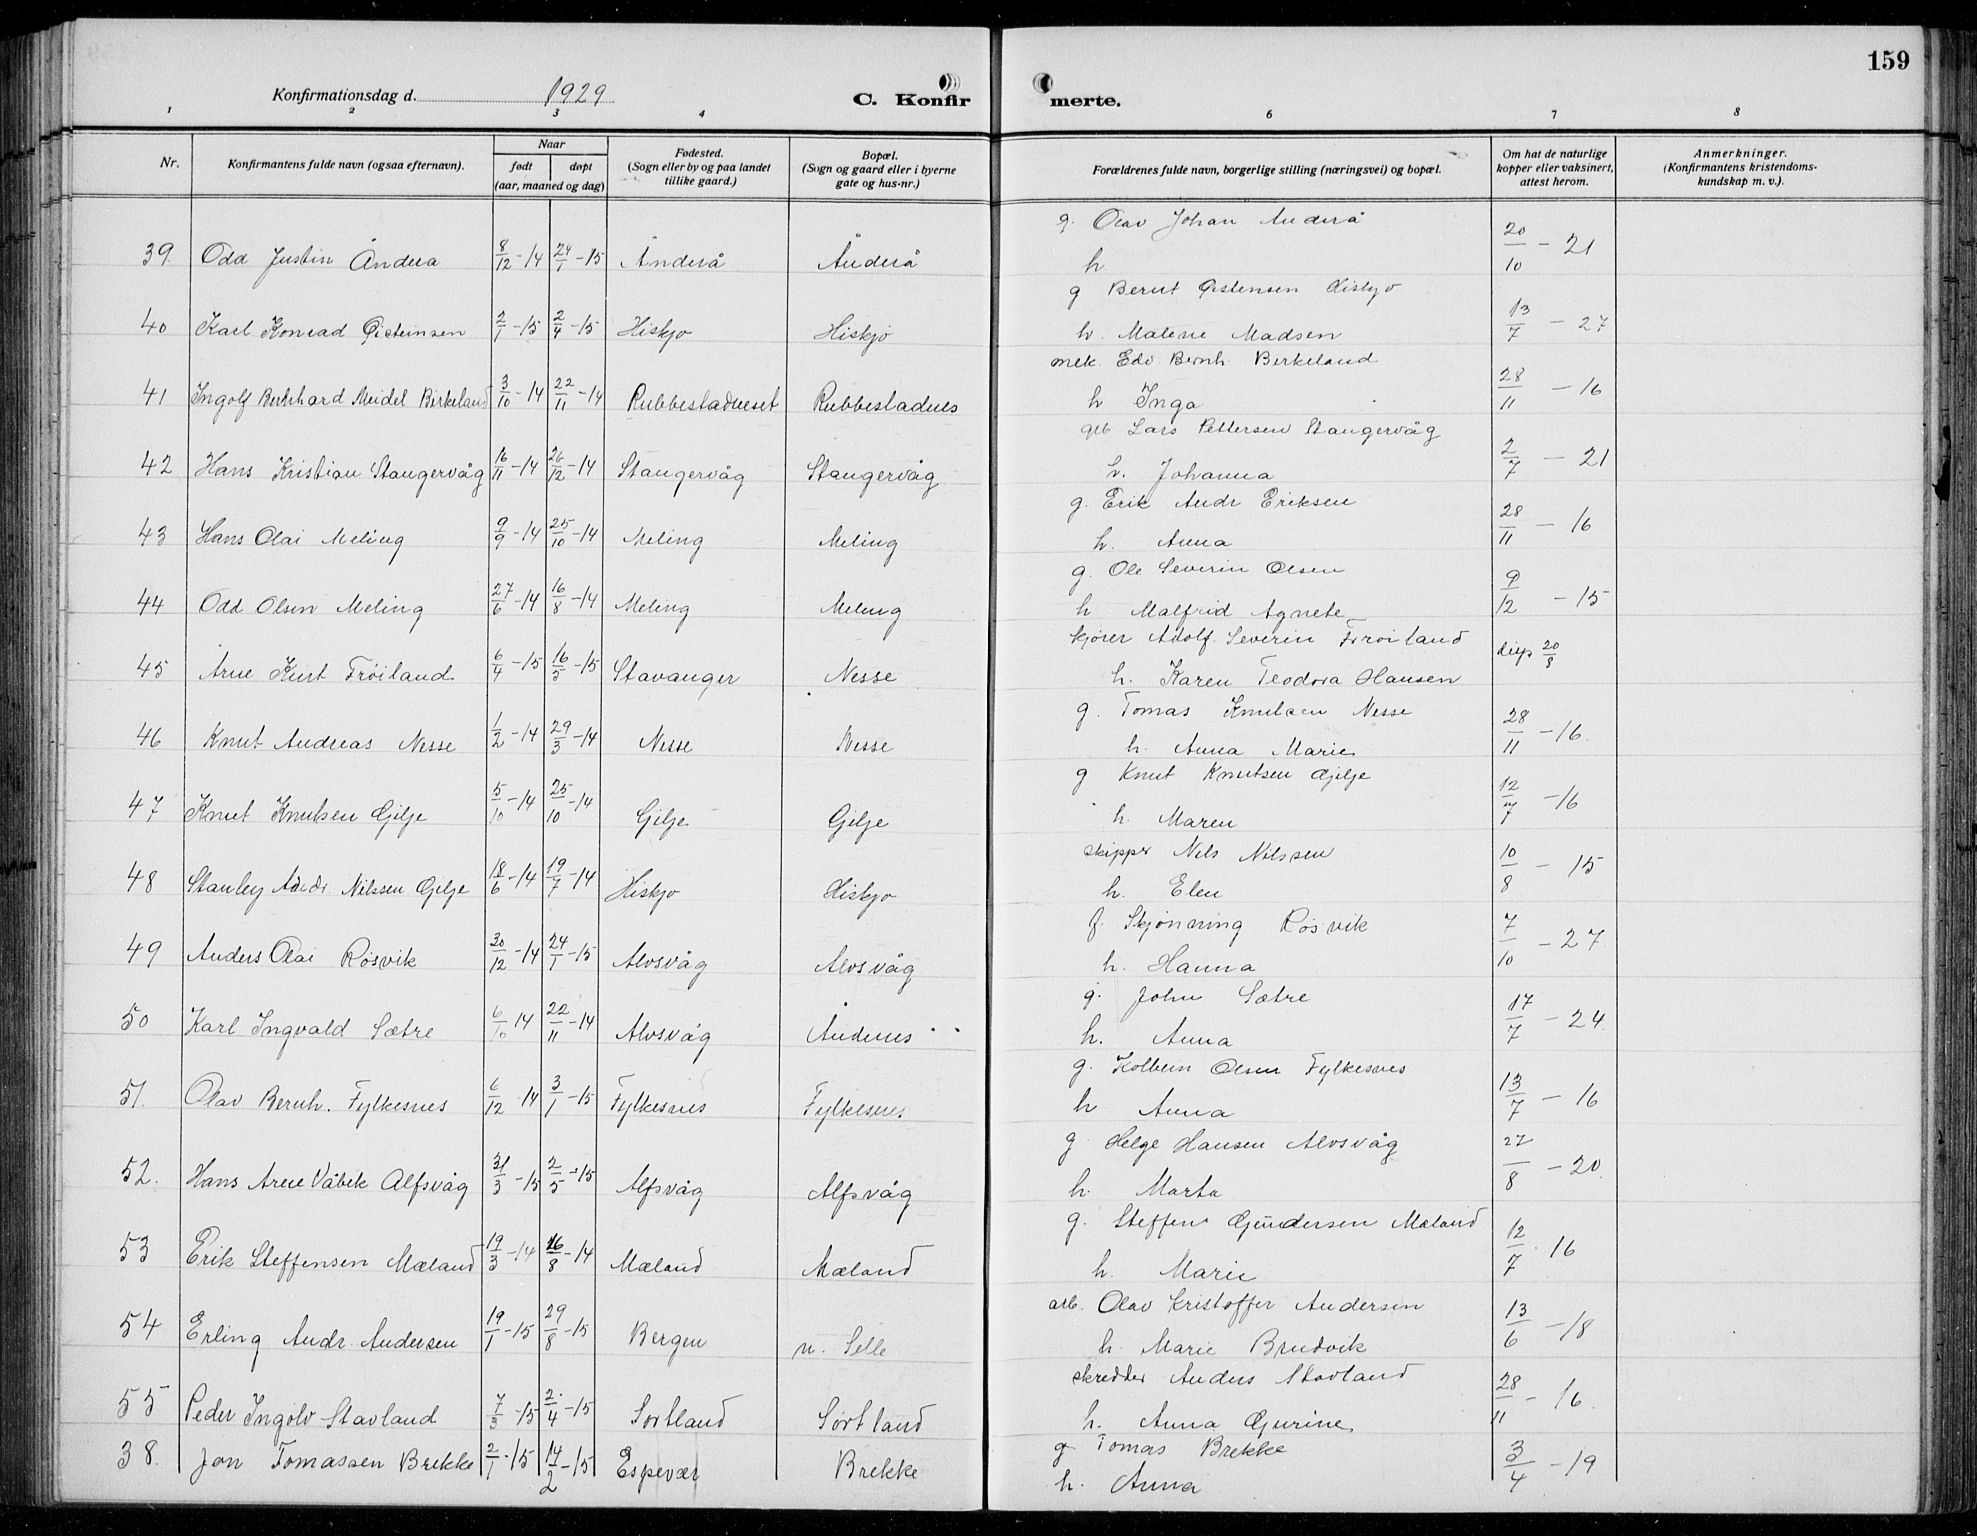 159
Konfirmationsdag d. 1929
C. Konfirmerte.
1 2 3 4 6 7 8
Nr. Konfirmantens fulde navn (ogsaa efternavn). Naar født døpt (aar, maaned og dag) Fødested. (Sogn eller by og paa landet tillike gaard.) Bopæl. (Sogn og gaard eller i byerne gate og hus-nr.) Forældrenes fulde navn, borgerlige stilling (næringsvei) og bopæl. Om hat de naturlige kopper eller vaksinert, attest herom. Anmerkninger. (Konfirmantens kristendoms-kundskap m. v.).
g. Olav Johan Anderå
39. Odd Justin Åndera 8/12-14 24/1-15 Anderå Anderå h. 20/10-21
g Bernt Østensen Hiskjo
40 Karl Konrad Østeinsen 2/1-15 2/4-15 Hiskjo Hiskjo h. Malene Madsen 13/7-27
mek. Edv. Bernh. Birkeland
41 Ingolf Bernhard Meidel Birkeland 3/10-14 22/11-14 Rubbestadneset Rubbestadnes h Inga 28/11-16
Lars Pettersen Stangervåg
42 Hans Kristian Stangervåg 16/11-14 26/12-14 Stangervåg Stangervåg h. Johanna 2/7-21
g. Erik Andr Eriksen
43 Hans Olai Meling 9/9-14 25/10-14 Meling Meling h. Anna 28/11-16
g. Ole Severin Olsen
44 Odd Olsen Meling 27/6-14 16/8-14 Meling Meling h Malfrid Agnete 9/12-15
kjører Adolf Severin Frøiland
45 Arne Kurt Frøiland 6/4-15 16/5-15 Stavanger Nesse h. Karen Teodora Hansen disp 20/8
g. Tomas Knutsen Nesse
46 Knut Andreas Nesse 1/2-14 29/3-14 Nesse Nesse h. Anna Marie 28/11-16.
g Knut Knutsen Gjilje
47 Knut Knutsen Gilje 5/10-14 25/10-14 Gilje Gilje h. Maren 12/7-16
skipper Nils Nilssen
48 Stanley Andr Nilssen Gilje 18/6-14 19/7-14 Hiskjo Hiskjo h. Elen 10/8-15
f. Skjønning Røsvik
49 Anders Olai Røsvik 30/12-14 24/1-15 Alvsvåg Alvsvåg h. Hanna 7/10-27.
g. John Sætre
50 Karl Ingvald Sætre 6/10 14 22/11-14 Alvsvåg Andenes h. Anna 17/7-24
g. Kolbein Olsen Fylkesnes
51. Olav Bernh. Fylkesnes 6/12 14 3/1-15 Fylkesnes Fylkesnes h Anna 13/7-16
g Helge Hansen Alvsvåg
52. Hans Arne Våbek Alfsvåg 31/3-15 2/5-15 Alfsvåg Alfsvåg h. Marta 27/8-20.
g. Steffen Gundersen Mæland
53 Erik Steffensen Mæland 19/3-14 16/8-14 Mæland Mæland h. Marie 12/7 16
arb. Olav Kristoffer Andersen
54 Erling Andr. Andersen 19/1-15 29/8-15 Bergen n. Selle h. Marie Brudvik 13/6-18
skredder Anders Stavland
55 Peder Ingolv Stavland 7/3-15 2/4-15 Sortland Sortland h. Anna Gurine 28/11-16.
g Tomas Brekke
38. Jon Tomassen Brekke 2/1-15 14/2-15 Espevær Brekke h. Anna 3/4-19